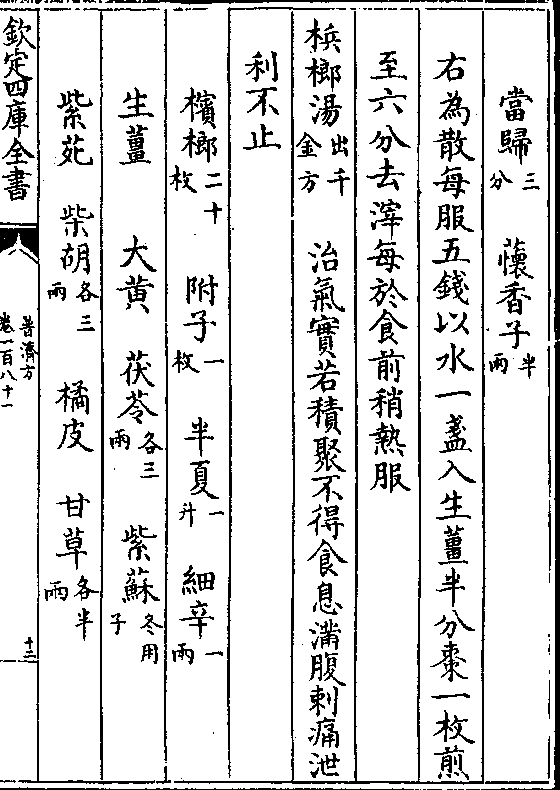 當歸三分 蘹香子半兩
右為散每服五錢以水一盞入生薑半分棗一枚煎
至六分去滓每於食前稍熱服
檳榔湯出千金方 治氣實若積聚不得食息滿腹刺痛泄
利不止
檳榔二十枚 附子一枚 半夏一升 細辛一兩
生薑 大黄 茯苓各三兩 紫蘇冬用子
紫苑 柴胡各三兩 橘皮 甘草各半兩
欽定四庫全書
普濟方
卷一百八十一
十三